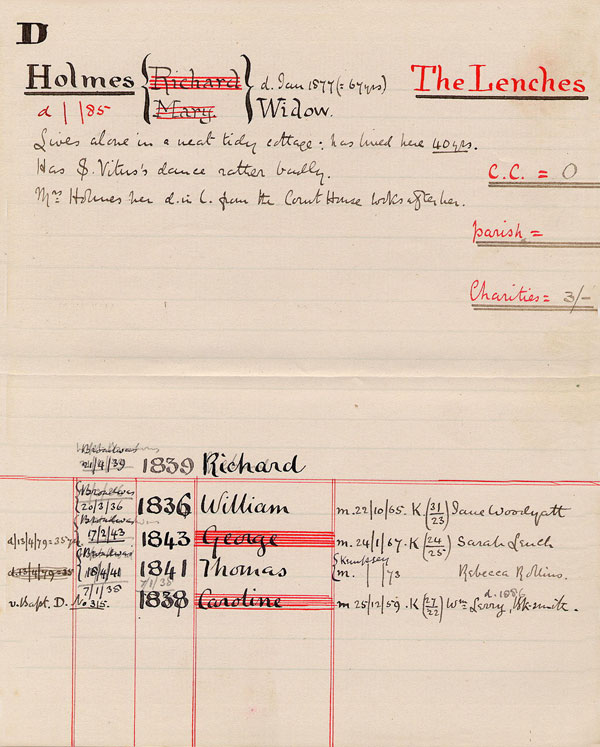 D
Holmes { Richard } d. Jan 1877 (= 67 yrs) The Lenches
d | | 85 { Mary. } Widow.
Lives alone in a neat tidy cottage: has lived here 40 yrs.
Has S. Vitus's dance rather badly.
C.C. = 0
Mrs Holmes her d. in l. from the Court House looks after her.
Parish =
Charities = 3/-
Broadwas
21/4/39 1839 Richard
Broadwas
20/3/36 1836 William m. 22/10/65. K (31/23) Jane Woodyatt
Broadwas
d/13/4/79=35 17/2/43 1843 George m. 24/1/67. K (24/25) Sarah Lench
Broadwas Kempsey
d. 13/4/79=35 18/4/41 1841 Thomas m. | /73 Rebecca Rollins.
7/1/38 7/1/38 d. 1886
v. Bapt. D. No 315. 1838 Caroline m 25/12/59. K (27/22) Wm Lerry, Bksmith.